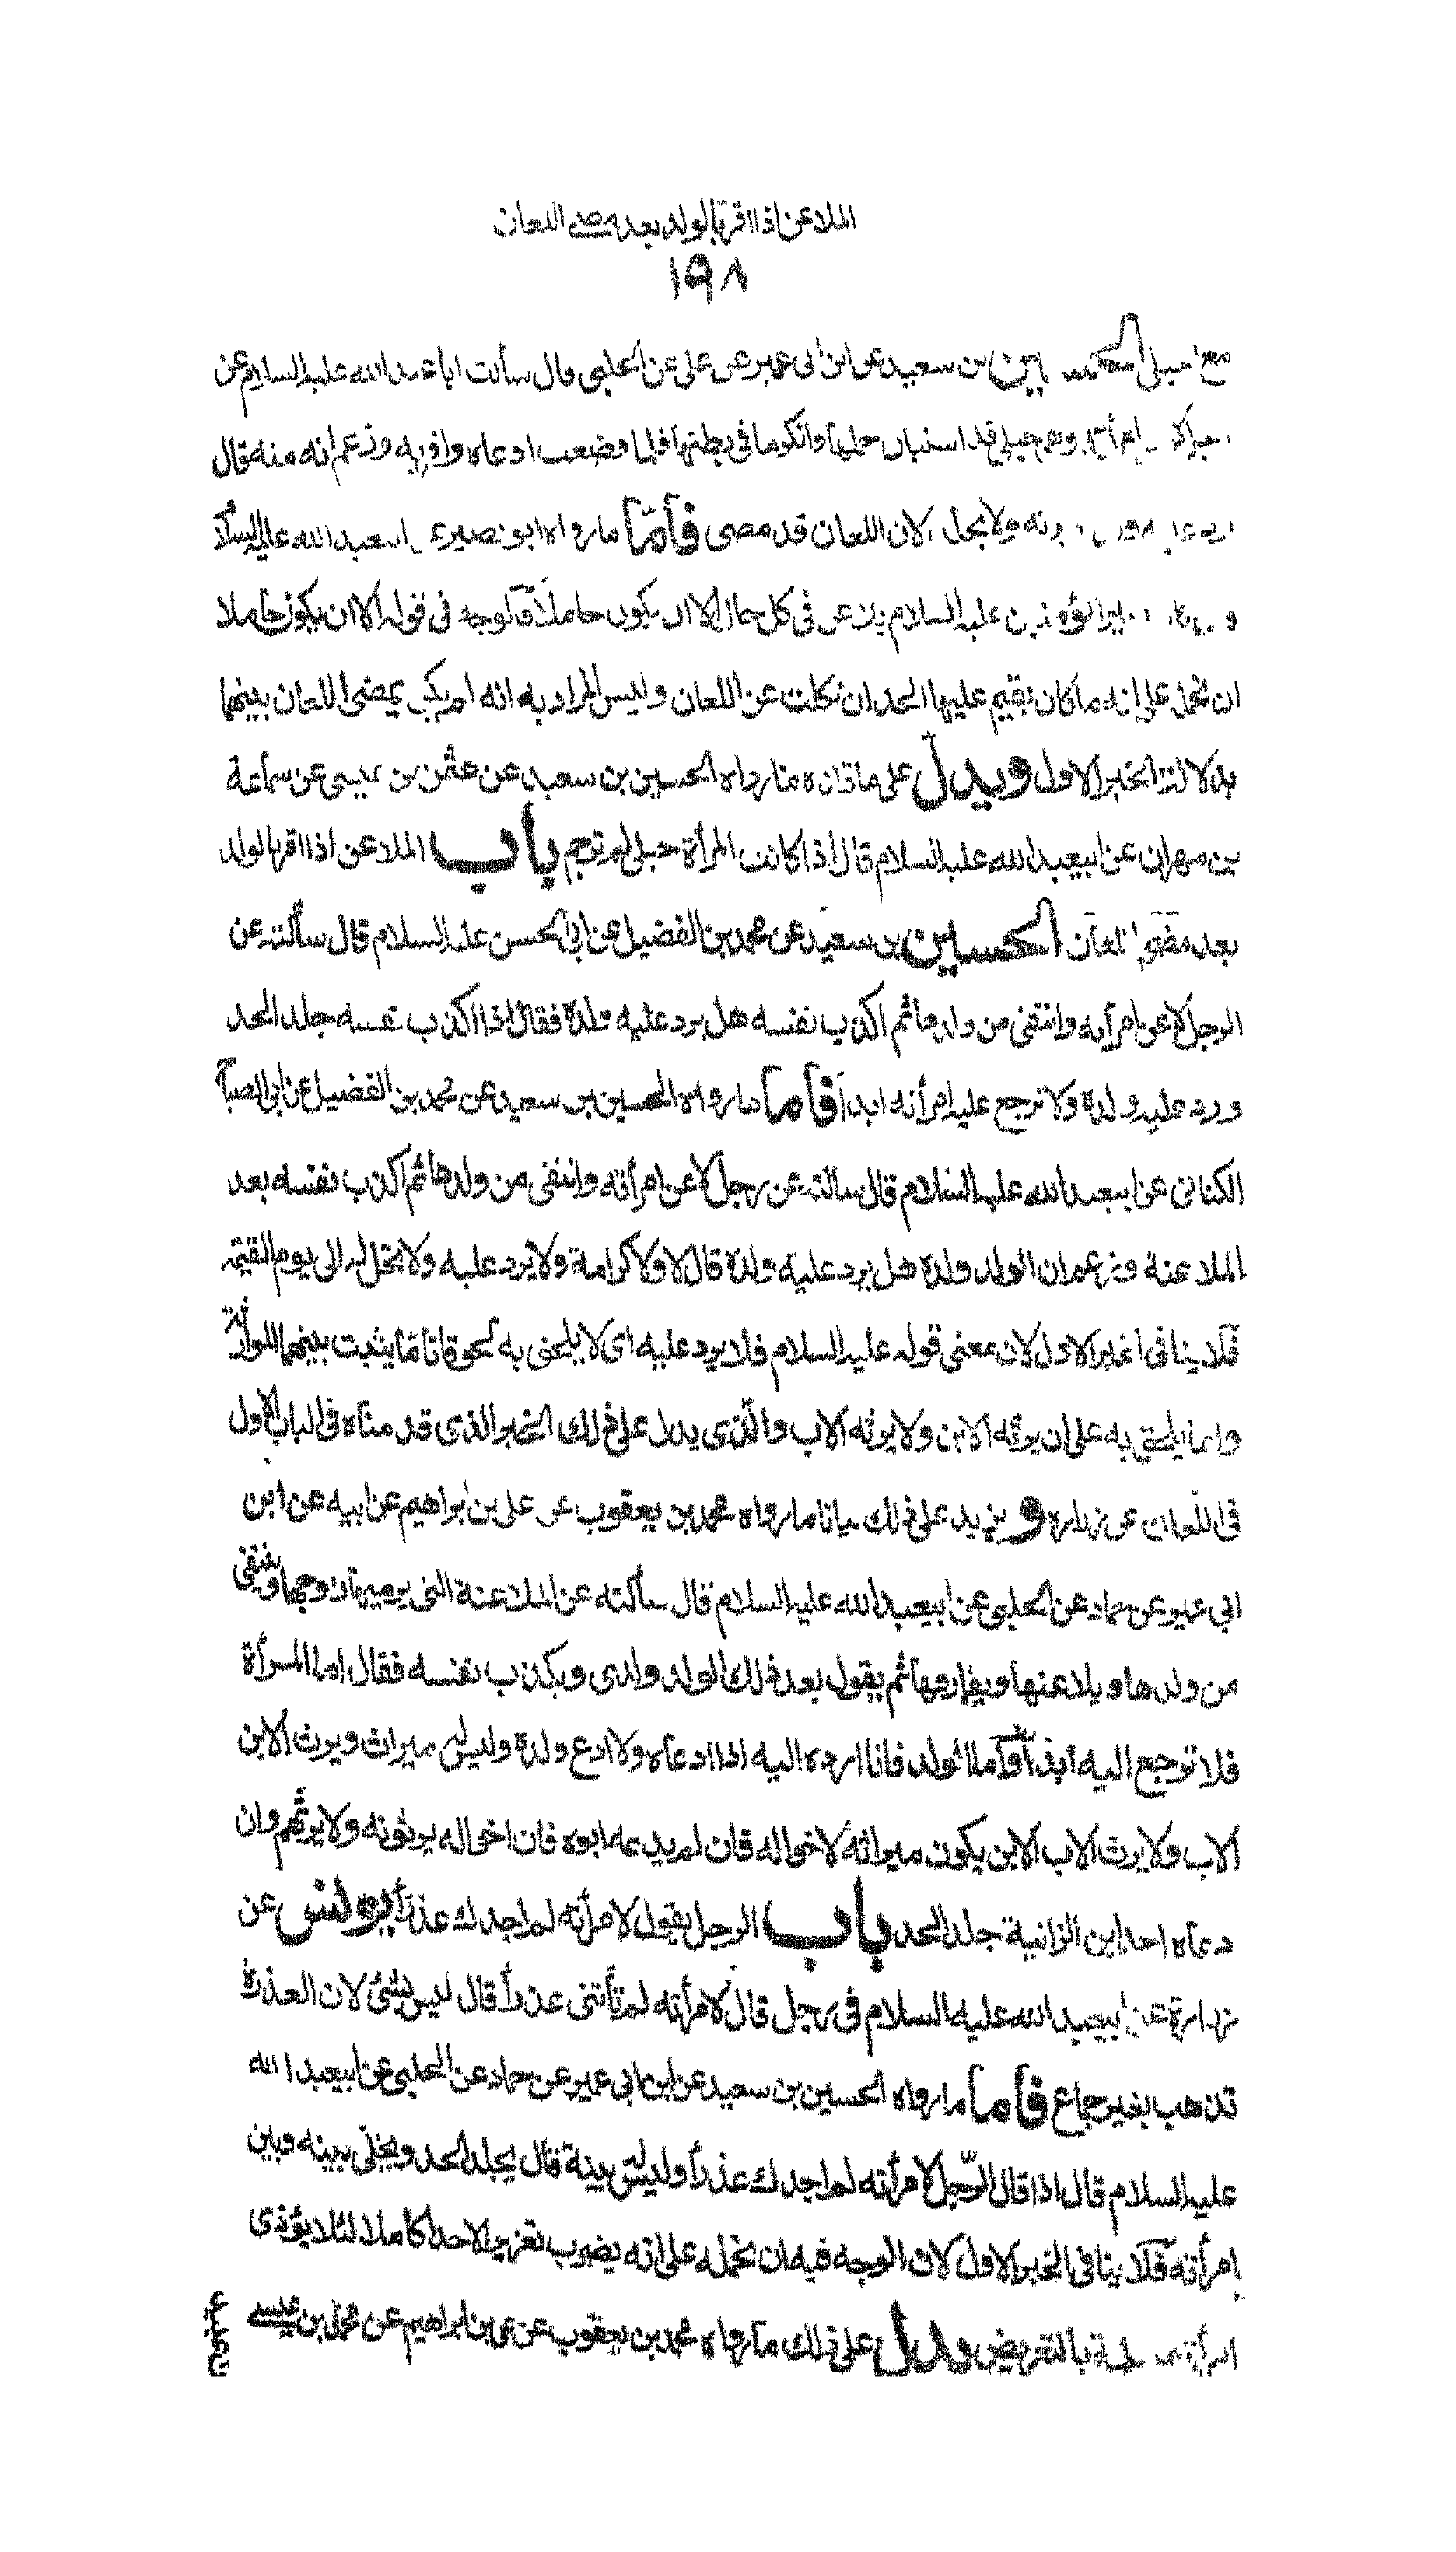 الملاعن اذا اقر بالولد بعد مضى اللعان
١٩٨
حبلى الحسين بن سعيد عن ابن ابى عمير عن على عن الحلبى قال سألت ابا عبد الله عليه السلام عن
وهى حبلى قد استبان حملها وانكر ما فى بطنها فلما وضعت ادعاه واقر به وزعم انه منه قال
ولا يجلد لان اللعان قد مضى فأمّا ما رواه ابو بصير عن ابيعبد الله عليه السلام
امير المؤمنين عليه السلام يلاعن فى كل حال الا ان يكون حاملا فالوجه فى قوله الا ان يكون حاملا
ان نحمل على انه ما كان يقيم عليها الحد ان نكلت عن اللعان وليس المراد به انه لم يكن يمضى اللعان بينهما
بدلالة الخبر الاول ويدل على ما قلناه ما رواه الحسين بن سعيد عن عثمن بن عيسى عن سماعة
بن مهران عن ابيعبد الله عليه السلام قال اذا كانت المرأة حبلى لم ترجم باب الملاعن اذا اقر بالولد
بعد مضى اللعان الحسين بن سعيد عن محمد بن الفضيل عن ابى الحسن عليه السلام قال سألته عن
الرجل لاعن امرأته وانتفى من ولدها ثم اكذب نفسه هل يرد عليه ولده فقال اذا اكذب نفسه جلد الحد
ورد عليه ولده ولا ترجع عليه امرأته ابدا فأما ما رواه الحسين بن سعيد عن محمد بن الفضيل عن ابى الصباح
الكنانى عن ابيعبد الله عليه السلام قال سالته عن رجل لاعن امرأته وانتفى من ولدها ثم اكذب نفسه بعد
الملاعنة وزعم ان الولد ولده هل يرد عليه ولده قال لا ولا كرامة ولا يرد عليه ولا تحل له الى يوم القيمة
فلا ينافى الخبر الاول لان معنى قوله عليه السلام فلا يرد عليه اى لا يلحق به لحوقا تاما يثبت بينهما الموارثة
وانما يلحق به على ان يرثه الابن ولا يرثه الاب والذى يدل على ذلك الخبر الذى قدمناه فى الباب الاول
فى اللعان عن زرارة ويزيد على ذلك بيانا ما رواه محمد بن يعقوب عن على بن ابراهيم عن ابيه عن ابن
ابى عمير عن حماد عن الحلبى عن ابيعبد الله عليه السلام قال سألته عن الملاعنة التى يرميها زوجها وينتفى
من ولدها ويلاعنها ويفارقها ثم يقول بعد ذلك الولد ولدى ويكذب نفسه فقال اما المرأة
فلا ترجع اليه ابدا واما الولد فانا ارده اليه اذا ادعاه ولا ادع ولده وليس له ميراث ويرث الابن
الاب ولا يرث الاب الابن يكون ميراثه لاخواله فان لم يدعه ابوه فان اخواله يرثونه ولا يرثهم وان
دعاه احد ابن الزانية جلد الحد باب الرجل يقول لامرأته لم اجدك عذرأ يونس عن
زرارة عن ابيعبد الله عليه السلام فى رجل قال لامرأته لم تأتنى عذرأ قال ليس بشئ لان العذرة
تذهب بغير جماع فأما ما رواه الحسين بن سعيد عن ابن ابى عمير عن حماد عن الحلبى عن ابيعبد الله
عليه السلام قال اذا قال الرجل لامرأته لم اجدك عذرأ وليس له بينة قال يجلد الحد ويخلى بينه وبين
امرأته فلا ينافى الخبر الاول لان الوجه فيه ان نحمله على انه يضرب تعزيرا لا حدا كاملا لئلا يؤذى
امرأة مسلمة بالتعريض ويدل على ذلك ما رواه محمد بن يعقوب عن على بن ابراهيم عن محمد بن عيسى
بن عبيد